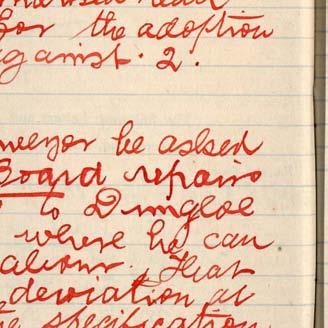 for the adoption
against. 2.
be asked
Board repairs
to Dungloe
where he can
That
deviation at
specification